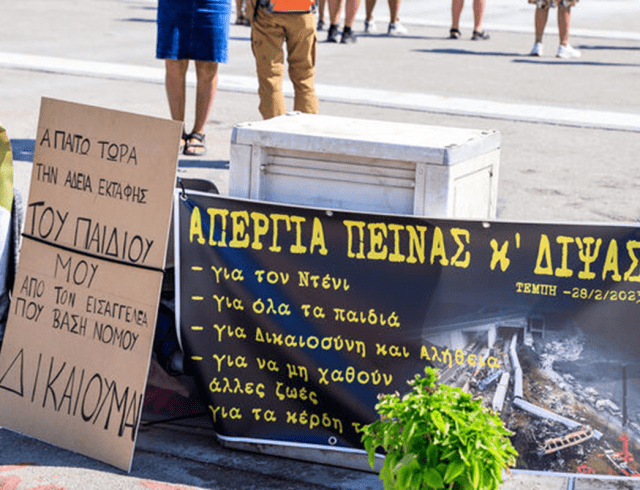 ΑΠΑΙΤΩ ΤΩΡΑ
ΤΗΝ ΑΔΕΙΑ ΕΚΤΑΦΗΣ
ΤΟΥ ΠΑΙΔΙΟΥ
ΜΟΥ
ΑΠΟ ΤΟΝ ΕΙΣΑΓΓΕΛΕΑ
ΠΟΥ ΒΑΣΗ ΝΟΜΟΥ
ΔΙΚΑΙΟΥΜΑΙ
ΑΠΕΡΓΙΑ ΠΕΙΝΑΣ κ' ΔΙΨΑΣ
ΤΕΜΠΗ -28/2/2023
- για τον Ντένι
- για όλα τα παιδιά
- για Δικαιοσύνη και Αλήθεια
- για να μη χαθούν
άλλες ζωές
για τα κέρδη τ